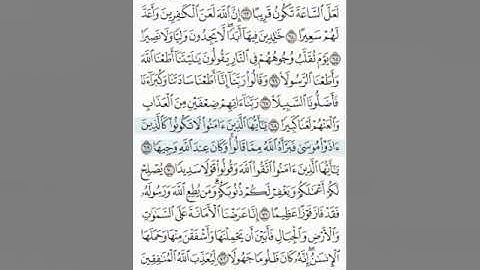 لَعَلَّ ٱلسَّاعَةَ تَكُونُ قَرِيبًا ۝٦٣ إِنَّ ٱللَّهَ لَعَنَ ٱلْكَٰفِرِينَ وَأَعَدَّ
لَهُمْ سَعِيرًا ۝٦٤ خَٰلِدِينَ فِيهَآ أَبَدًا ۖ لَّا يَجِدُونَ وَلِيًّا وَلَا نَصِيرًا
۝٦٥ يَوْمَ تُقَلَّبُ وُجُوهُهُمْ فِى ٱلنَّارِ يَقُولُونَ يَٰلَيْتَنَآ أَطَعْنَا ٱللَّهَ
وَأَطَعْنَا ٱلرَّسُولَا۠ ۝٦٦ وَقَالُوا۟ رَبَّنَآ إِنَّآ أَطَعْنَا سَادَتَنَا وَكُبَرَآءَنَا
فَأَضَلُّونَا ٱلسَّبِيلَا۠ ۝٦٧ رَبَّنَآ ءَاتِهِمْ ضِعْفَيْنِ مِنَ ٱلْعَذَابِ
وَٱلْعَنْهُمْ لَعْنًا كَبِيرًا ۝٦٨ يَٰٓأَيُّهَا ٱلَّذِينَ ءَامَنُوا۟ لَا تَكُونُوا۟ كَٱلَّذِينَ
ءَاذَوْا۟ مُوسَىٰ فَبَرَّأَهُ ٱللَّهُ مِمَّا قَالُوا۟ ۚ وَكَانَ عِندَ ٱللَّهِ وَجِيهًا ۝٦٩
يَٰٓأَيُّهَا ٱلَّذِينَ ءَامَنُوا۟ ٱتَّقُوا۟ ٱللَّهَ وَقُولُوا۟ قَوْلًا سَدِيدًا ۝٧٠ يُصْلِحْ
لَكُمْ أَعْمَٰلَكُمْ وَيَغْفِرْ لَكُمْ ذُنُوبَكُمْ ۗ وَمَن يُطِعِ ٱللَّهَ وَرَسُولَهُۥ
فَقَدْ فَازَ فَوْزًا عَظِيمًا ۝٧١ إِنَّا عَرَضْنَا ٱلْأَمَانَةَ عَلَى ٱلسَّمَٰوَٰتِ
وَٱلْأَرْضِ وَٱلْجِبَالِ فَأَبَيْنَ أَن يَحْمِلْنَهَا وَأَشْفَقْنَ مِنْهَا وَحَمَلَهَا
ٱلْإِنسَٰنُ ۖ إِنَّهُۥ كَانَ ظَلُومًا جَهُولًا ۝٧٢ لِّيُعَذِّبَ ٱللَّهُ ٱلْمُنَٰفِقِينَ